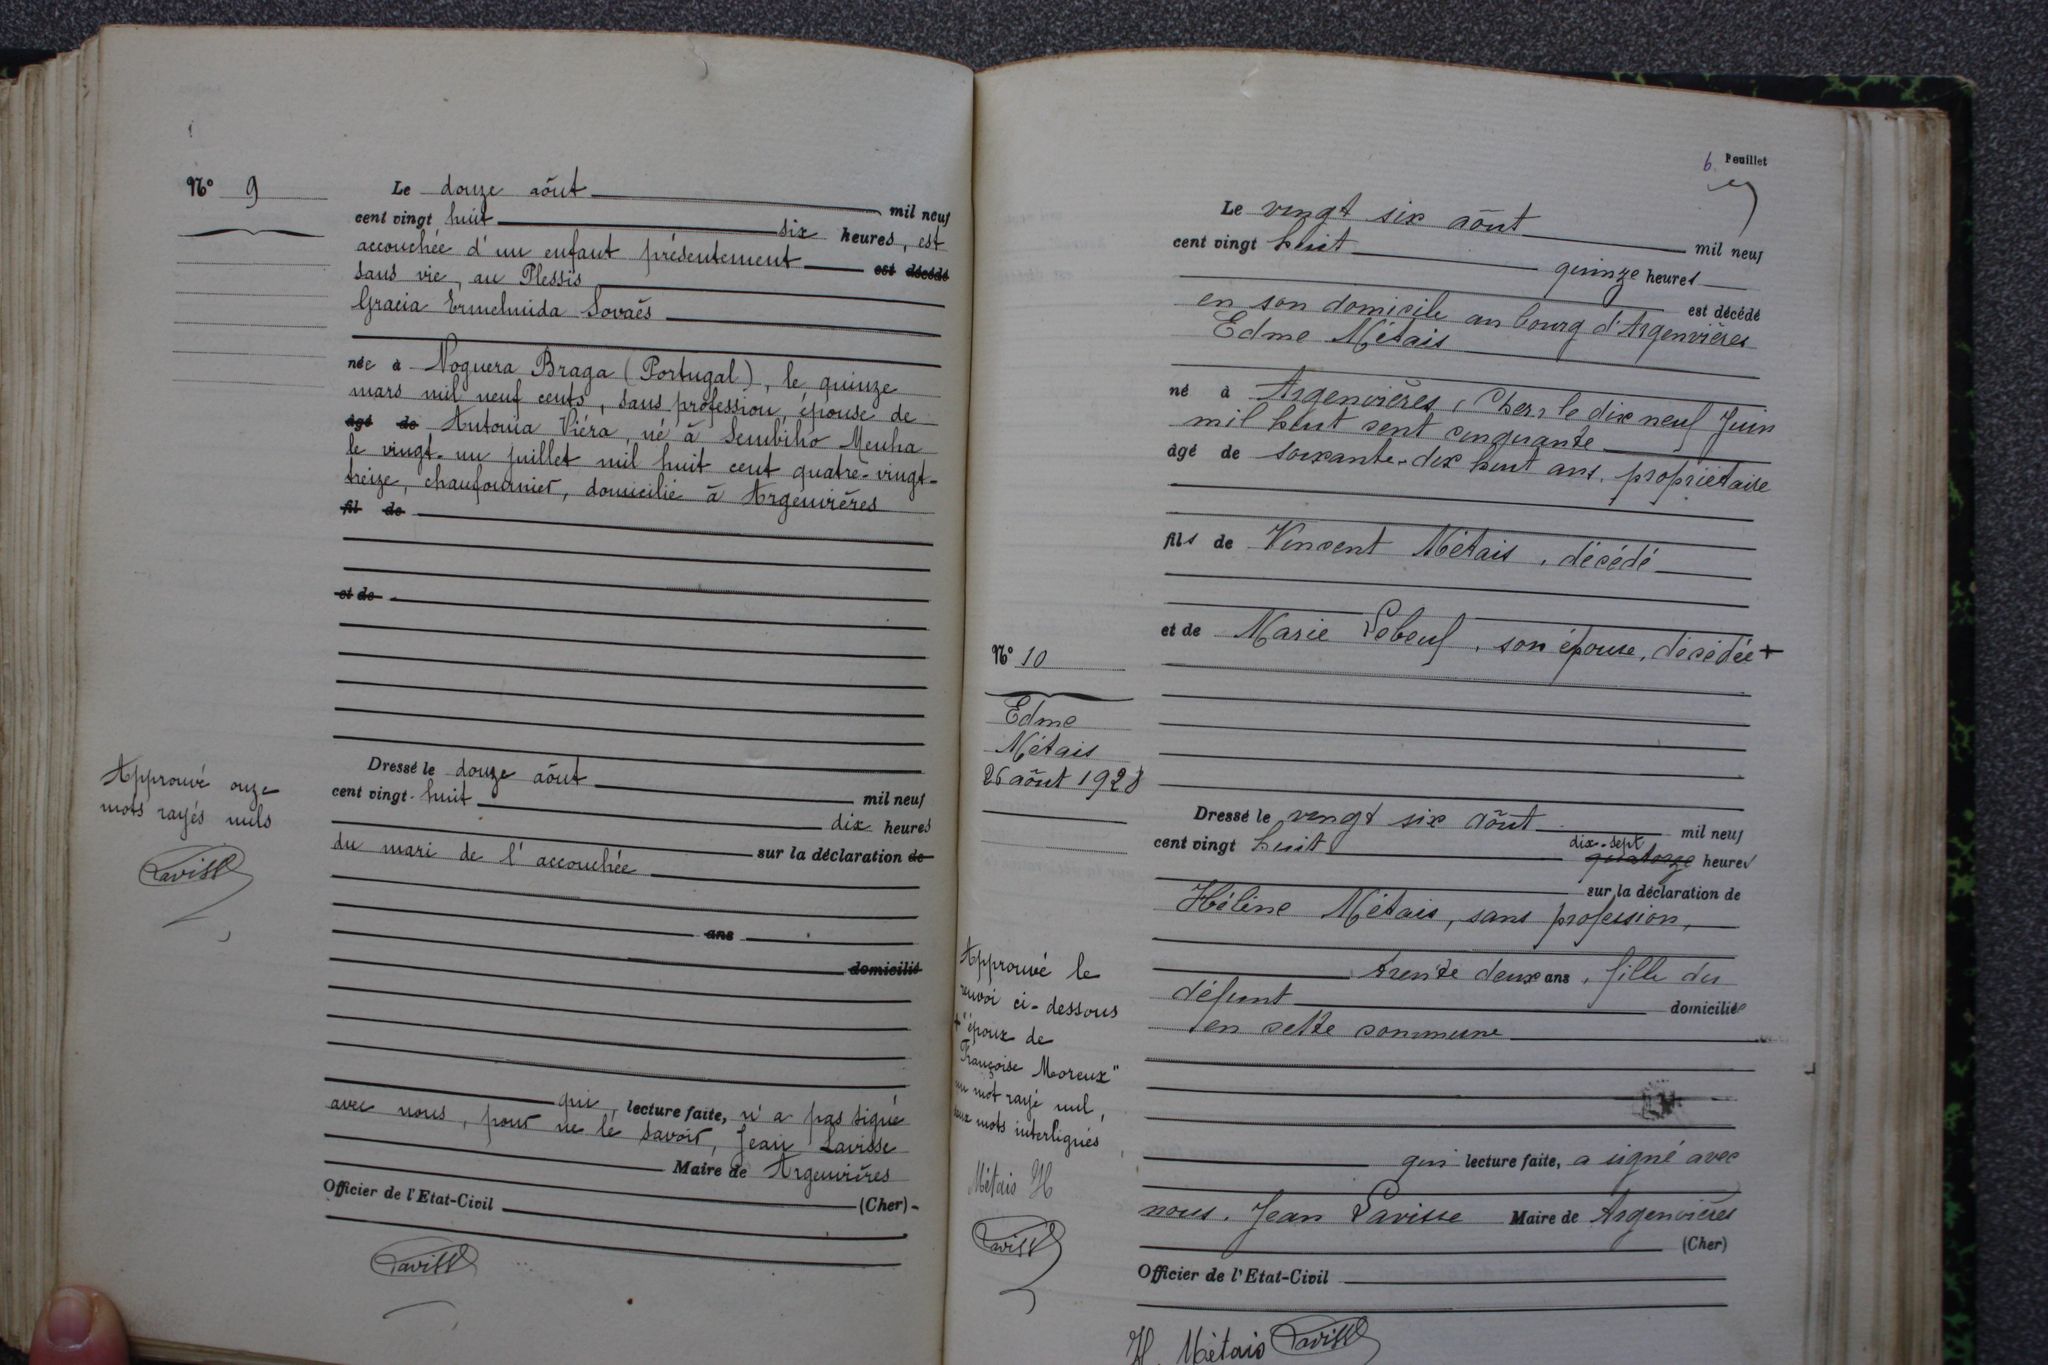 N° 9
Le douze aôut mil neuf
cent vingt huit six heures, est
accouchée d'un enfant présentement est décédé
sans vie, au Plessis
Gracia Ermelinida Sovaës
née à Noguera Braga (Portugal), le quinze
mars mil neuf cents, sans profession, épouse de
âgé de Antonia Viéra, né à Sembiho Menha
le vingt-un juillet mil huit cent quatre-vingt-
treize, chaufournier, domicilié à Argenvières
fil de
et de
Dressé le douze aôut mil neuf
cent vingt-huit dix heures
sur la déclaration de
du mari de l'accouchée
ans
domicilié
qui, lecture faite, n'a pas signé
avec nous, pour ne le savoir, Jean Lavisse
Maire de Argenvières
Officier de l'Etat-Civil (Cher)-
Lavisse
Approuvé onze
mots rayés nuls
Lavisse
6. Feuillet
7
Le vingt six aôut mil neuf
cent vingt huit quinze heures
est décédé
en son domicile au bourg d'Argenvières
Edme Métais
né à Argenvières, Cher, le dix neuf Juin
mil huit cent cinquante
âgé de soixante-dix huit ans, propriétaire
fils de Vincent Métais, décédé
et de Marie Lebeuf, son épouse, décédée +
N° 10
Edme
Métais
26 aôut 1928
Dressé le vingt six aôut mil neuf
dix-sept
cent vingt huit quatorze heures
sur la déclaration de
Hélène Métais, sans profession,
trente deux ans, fille du
défunt domiciliée
en cette commune
qui lecture faite, a signé avec
nous, Jean Lavisse Maire de Argenvières
(Cher)
Officier de l'Etat-Civil
H. Métais Lavisse
Approuvé le
renvoi ci-dessous
+ "époux de
Françoise Moreux"
un mot rayé nul,
deux mots interlignés
Métais H
Lavisse